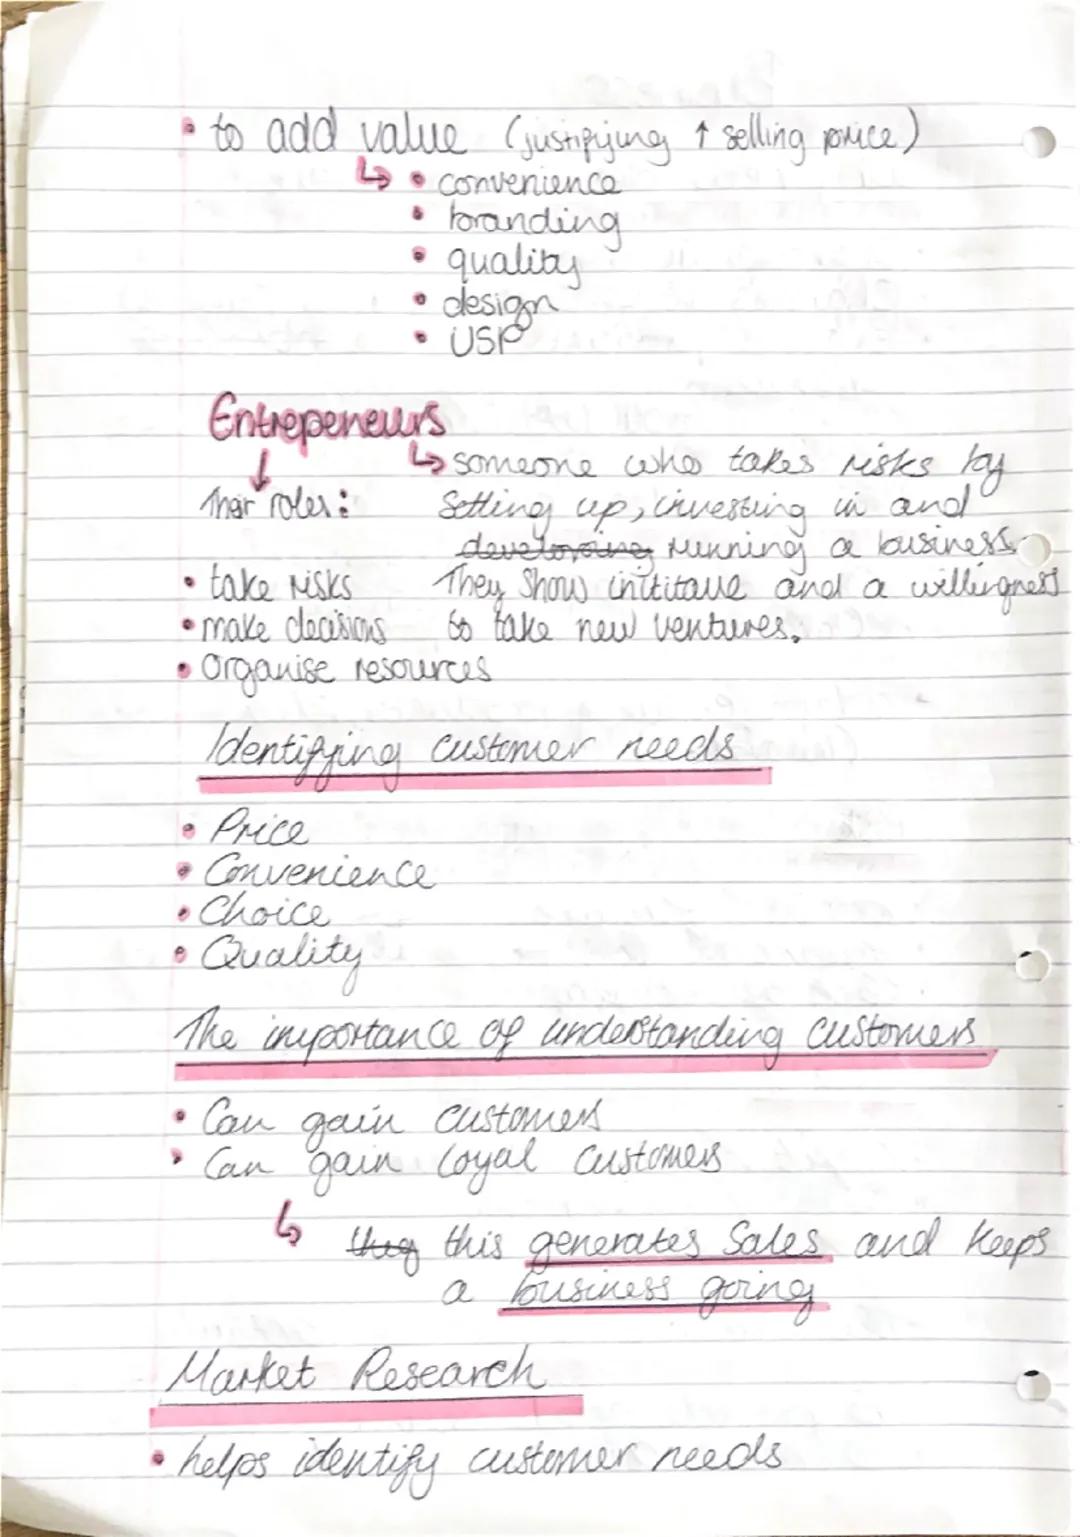 • to add value (justifying ↑ selling price)
↳ • convenience
• branding
• quality
• design
• USP
Entrepeneurs
↓
Their roles:
↳ someone who takes risks by
Setting up, investing in and
~~developing~~ running a business.
They show inititaue and a willingness
to take new ventures.
• take risks
• make decisions
• Organise resources
Identifying customer needs
• Price
• Convenience
• Choice
• Quality
The importance of understanding customers
• Can gain customers
• Can gain loyal customers
↳ ~~they~~ this generates Sales and keeps
a business going
Market Research
• helps identify customer needs